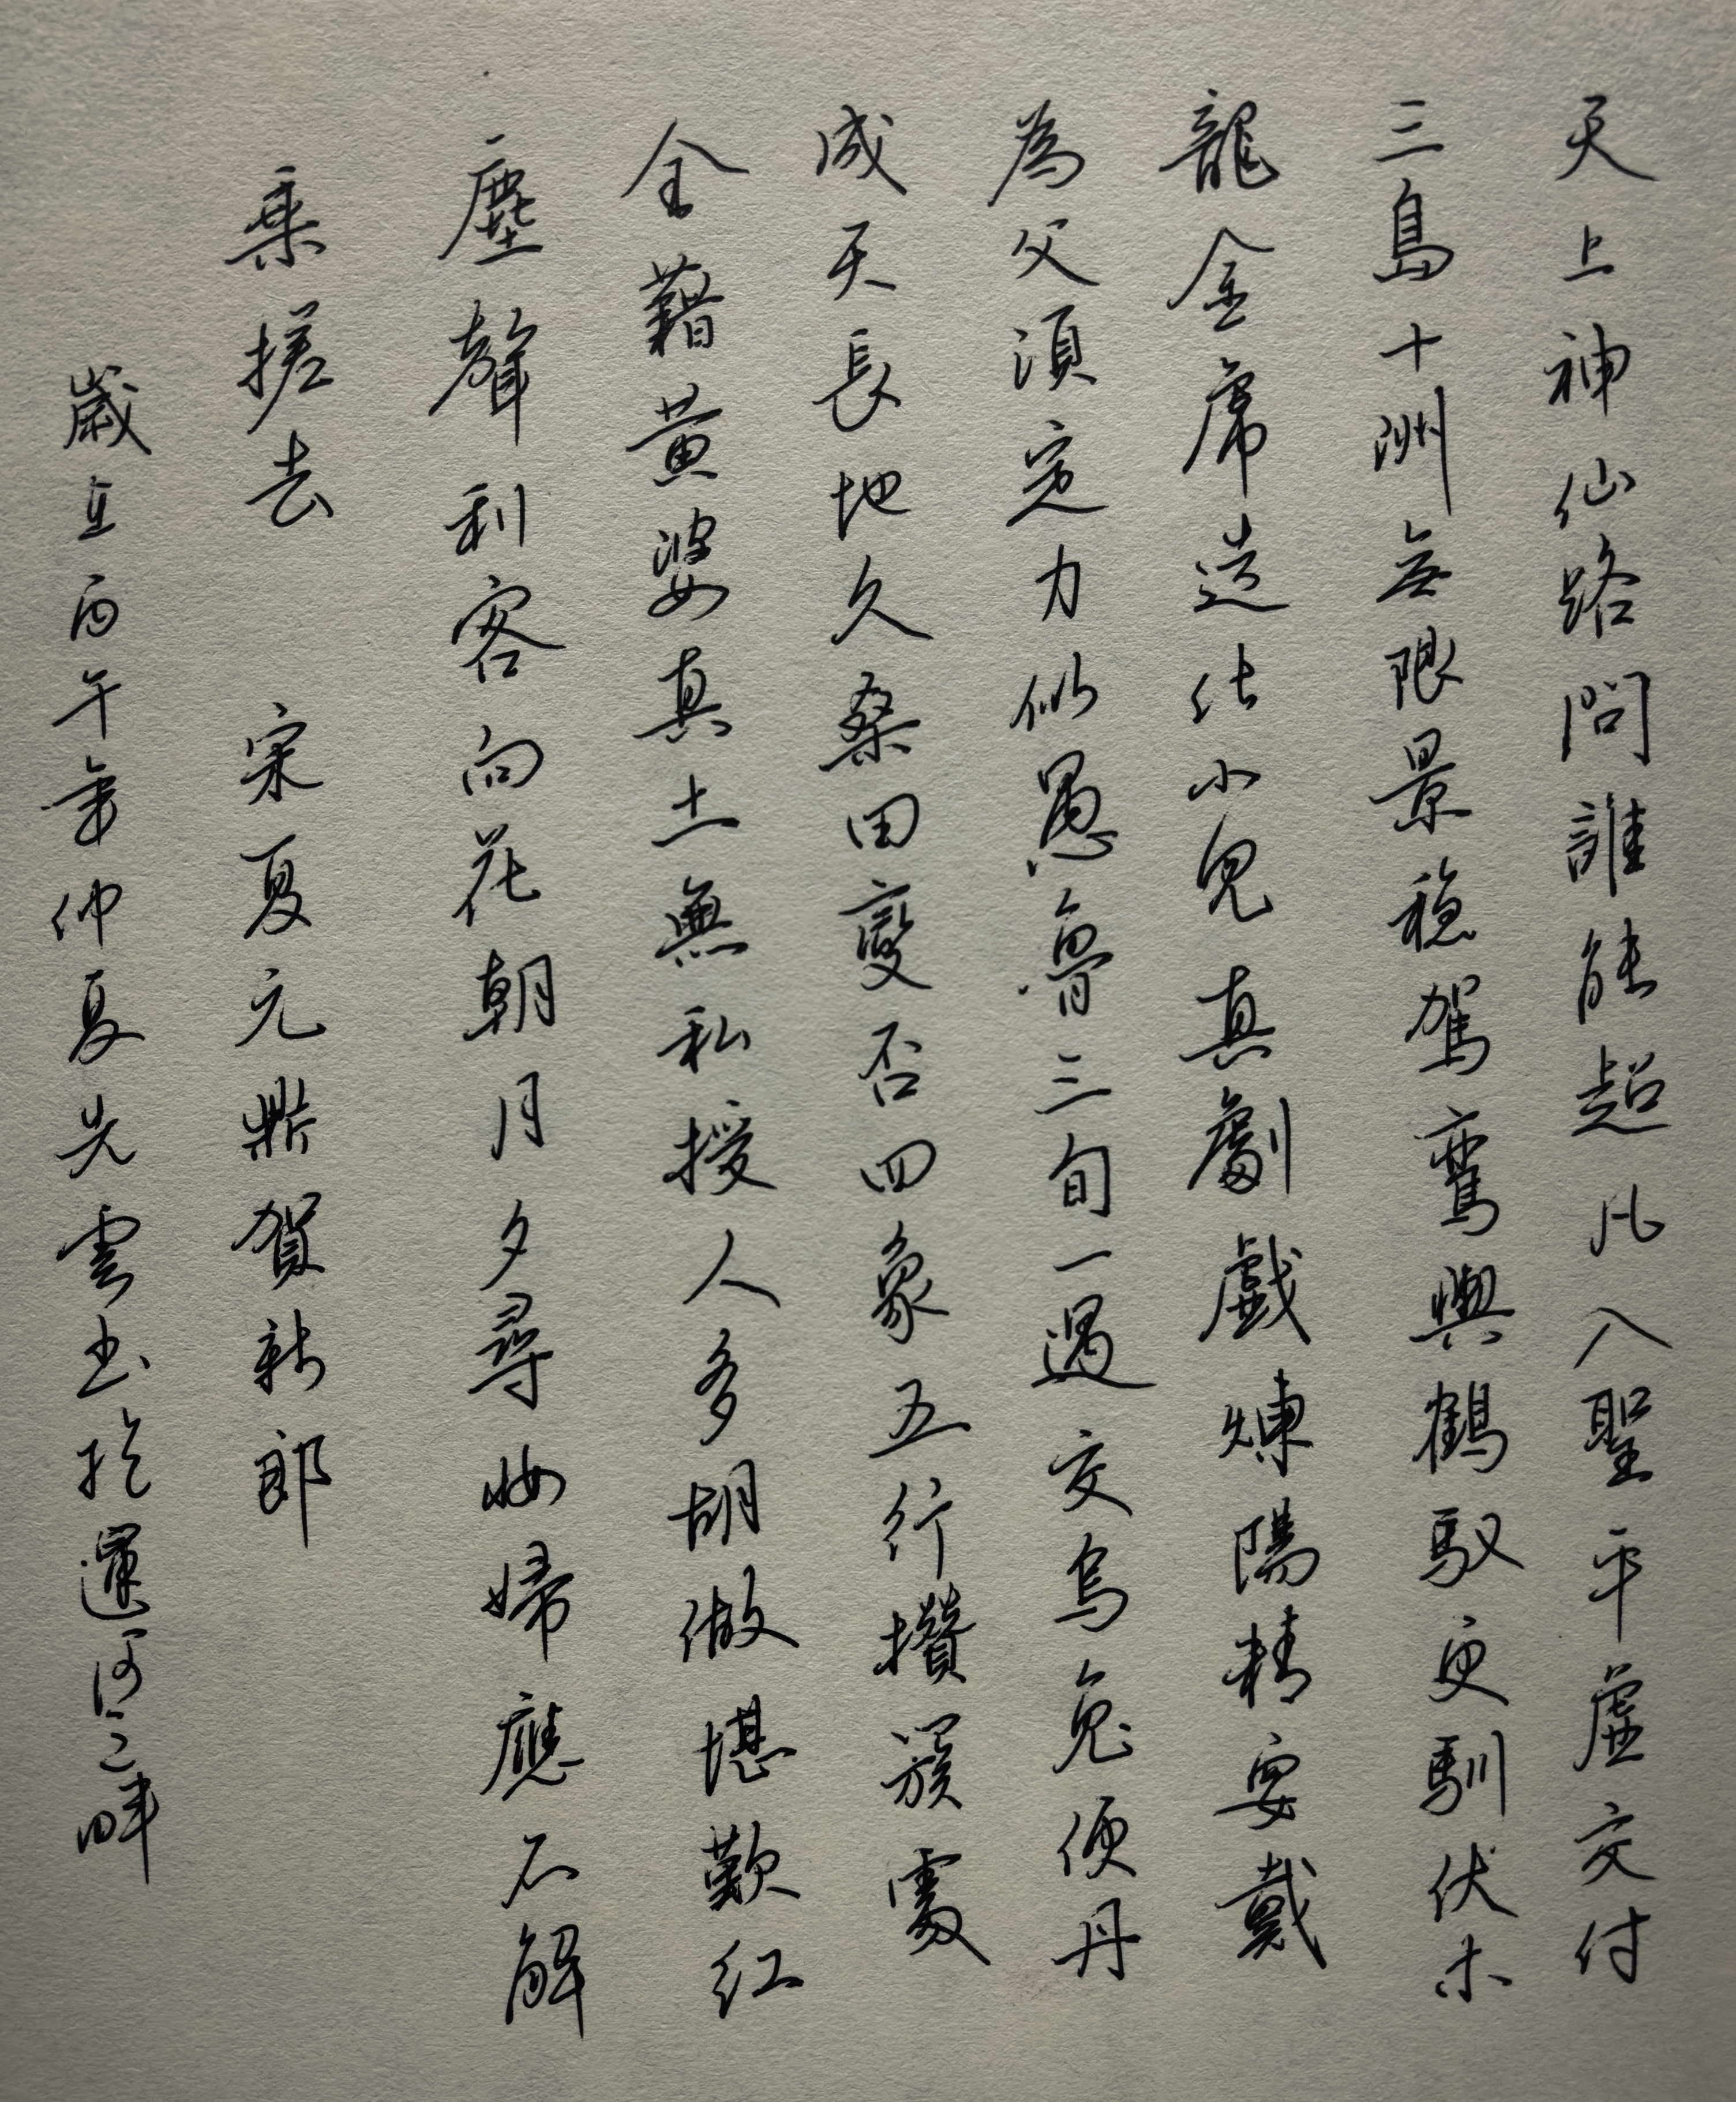 天上神仙路問誰能超凡入聖平虛交付
三島十洲無限景穩駕鸞輿鶴馭更馴伏木
龍金虎造化小兒真劇戲煉陽精要戴
為父須定力似愚魯三旬一遇交烏兔便丹
成天長地久桑田變否四象五行攢簇處
全藉黃婆真土無私授人多胡做堪歎紅
塵聲利客向花朝月夕尋妝婦應不解
乘槎去 宋夏元鼎賀新郎
歲在丙午年仲夏先雲書於運河之畔